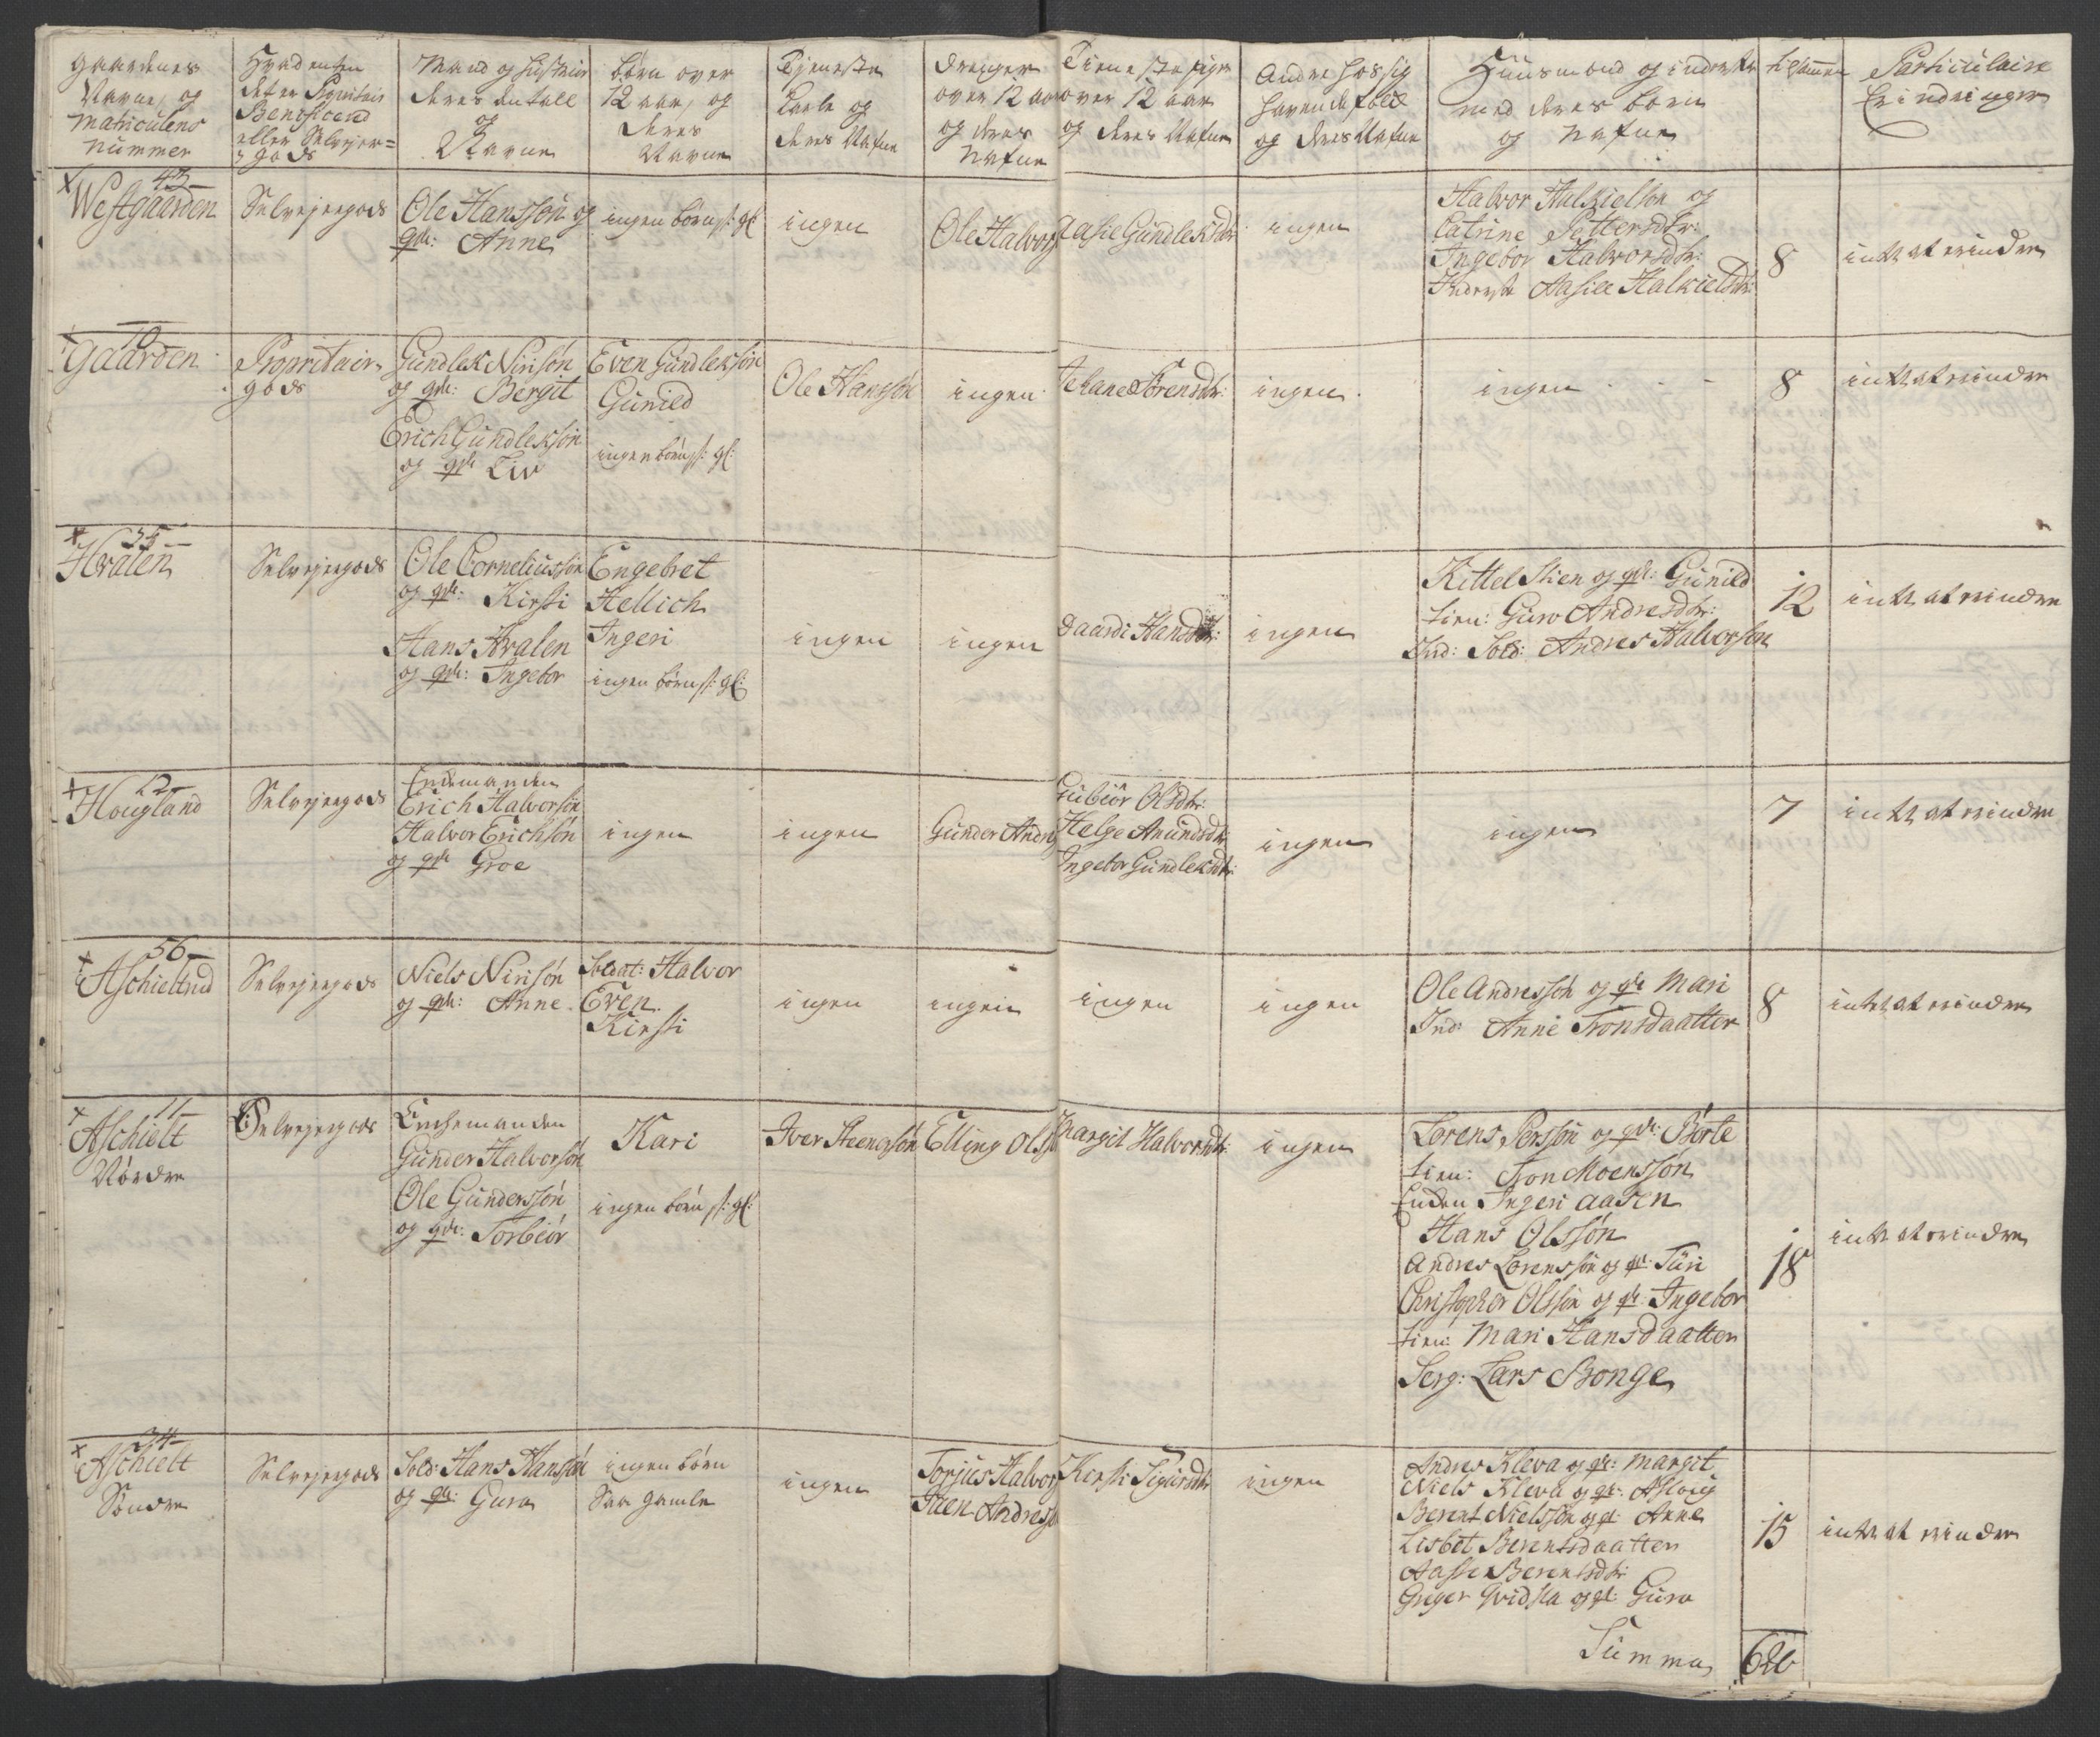 Gaardenes
Navne, og
Matriculens
Nummer
Hvad enten
det er Proprietair
Beneficeret
eller Selvejer=
gods
Mand og Hustruer
deres Antall
og
Navne
børn over
12 aar, og
deres
Navne
Tjeneste
Karle og
deres Nafne
Drenger
over 12 aar
og deres
Nafne
Tieneste piger
over 12 aar
og deres Nafne
Andre hos sig
havende folk
og deres Nafne
Huusmænd og inderste
med deres børn
og Nafne
tilsammen
Particulaire
Erindringer
43
Westgaarden
Selvejergods
Ole Hansson og
qde: Anne
ingen børn s: gl
ingen
Ole Halvors
Aasie Gundleksdtr:
ingen
Halvor Halkielson og
Catrine Pettersdtr:
Ingebor Halvorsdtr:
Inderste Aasille Halkielsdtr:
8
intet at erindre
10
Gaarden
Proprietair
gods
Gundlek Nirison
og qde: Bergit
Erich Gundlekson
og qde Liv
Even Gundlekson
Gunild
ingen børn s: gl:
Ole Hansson
ingen
Jehane Sørensdtr:
ingen
ingen
8
intet at erindre
35
Hvalen
Selvejergods
Ole Corneliusson
og qde: Kirsti
Hans Hvalen
og qde: Ingebor
Engebret
Hellich
Ingeri
ingen børn s: gl:
ingen
ingen
Daardi Hansdtr:
ingen
Kittel Stien og qde: Gunild
tien: Guro Andresdtr:
Ind: Sold: Andres Halvorson
12
intet at erindre
12
Hougland
Selvejergods
Enkemanden
Erich Halvorson
Halvor Erichson
og qde Groe
ingen
ingen
Gunder Andr
Gubiør Olsdtr:
Helge Anundsdtr
Ingebor Gundleksdtr:
ingen
ingen
7
intet at erindre
56
Aschieltrud
Selvejergods
Niels Nirisøn
og qde: Anne
Soldat: Halvor
Even
Kirsti
ingen
ingen
ingen
ingen
Ole Andressøn og qde Mari
Ind: Anne Tronsdaatter
8
intet at erindre
11
Aschielt
Nordre
Selvejergods
Enchemanden
Gunder Halvorsøn
Ole Gunderssøn
og qde: Torbiør
Kari
ingen børn s: gl:
Iver Steensøn
Elling Olss
Margit Halvorsdtr:
ingen
Lorens Perssøn og qde: Børte
tien: Tron Moenssøn
Enken Ingeri Aasen
Hans Olssøn
Andres Lorenssøn og qde: Turi
Christopher Olsson og qde Ingebor
tien: Mari Hansdaatter
Serg: Lars Bonge
18
intet at erindre
34
Aschielt
Søndre
Selvejergods
Sold: Hans Hanssøn
og qde: Guro
ingen børn
saa gamle
ingen
Torjus Halvors
Steen Andress
Kirsti Sigursdtr
ingen
Andres Kleva og qde: Margit
Niels Kleva og qde: Asloug
Berent Nielssøn og qd: Anne
Lisbet Berentsdaatter
Aasse Berentsdtr
Greger Qvidsla og qd: Guro
15
intet at erindre
Summa
626